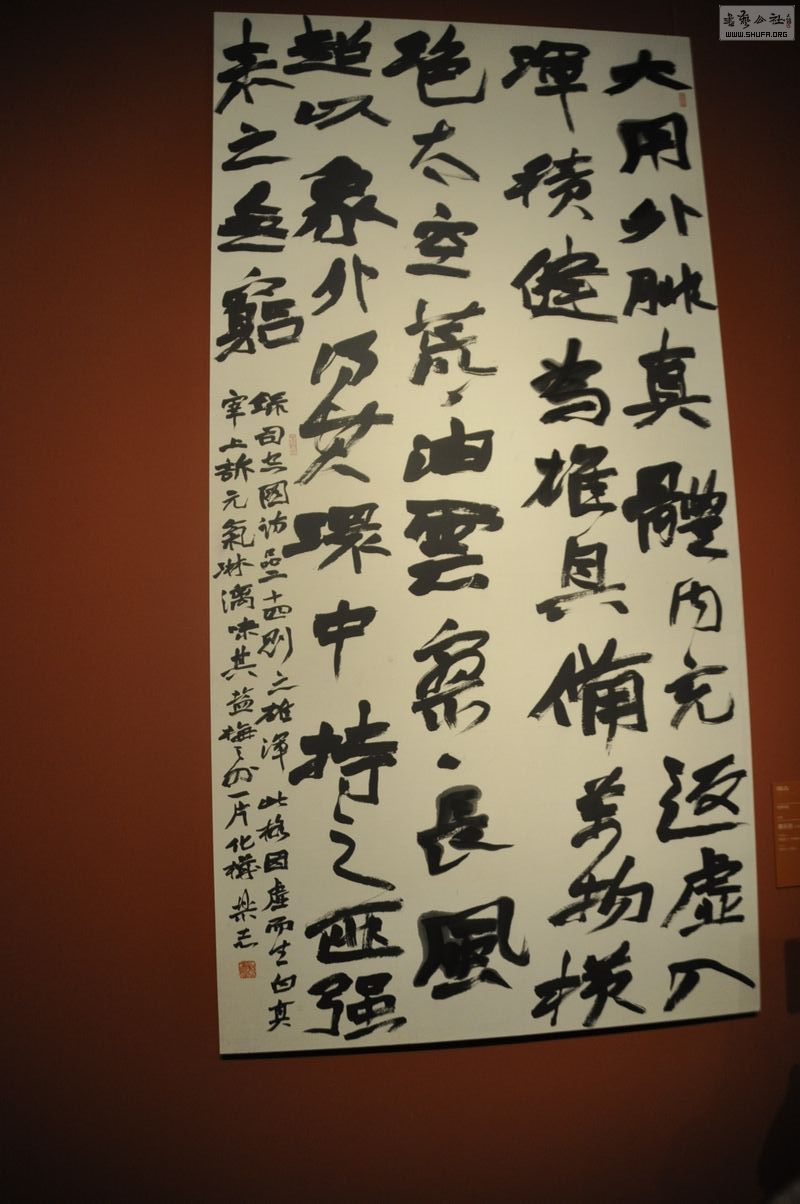 大用外腓真體内充返虛入
渾積健為雄具備萬物横
絕太空荒〻油雲寥〻長風
超以象外得其環中持之匪强
來之無窮
錄司空圖詩品二十四則之雄渾 此格因虛而生 由真
宰上訴元氣淋漓味其鹽梅之外一片化機
書藝公社
WWW.SHUFA.ORG